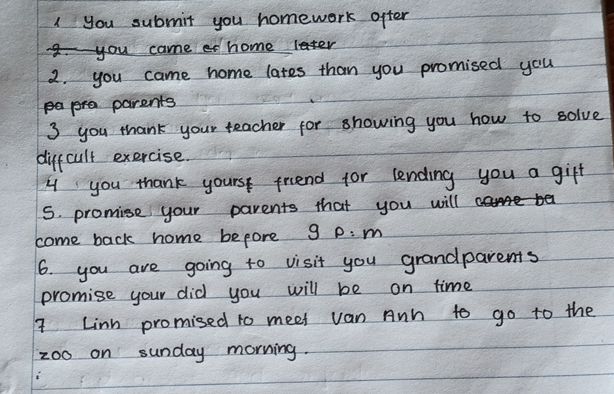 1 You submit you homework after
2. you came ef home later
2. you came home lates than you promised you
pa pra parents
3 you thank your teacher for showing you how to solve
diffcult exercise.
4 you thank yoursf friend for lending you a gift
5. promise your parents that you will came ba
come back home before 9 p.m
6. you are going to visit you grandparents
promise your did you will be on time
7 Linh promised to meet Van Anh to go to the
zoo on sunday morning.